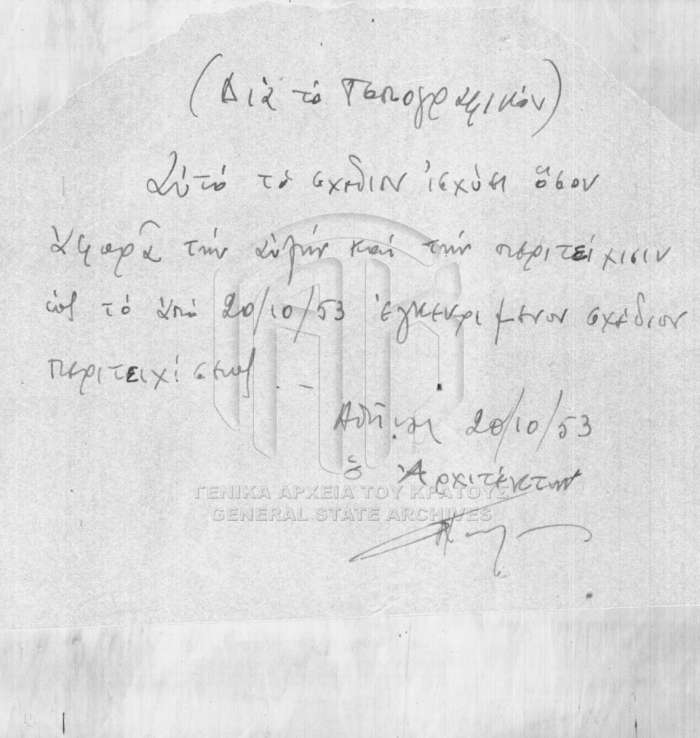 (Διὰ τὸ Τοπογραφικόν)
Αὐτὸ τὸ σχέδιον ἰσχύει ὅσον
ἀφορᾶ τὴν αὐλήν καὶ τὴν περιτείχισιν
ὡς τὸ ἀπὸ 20/10/53 ἐγκεκριμένον σχέδιον
περιτειχίσεως . –
Ἀθῆναι 20/10/53
ὁ Ἀρχιτέκτων
ΓΕΝΙΚΑ ΑΡΧΕΙΑ ΤΟΥ ΚΡΑΤΟΥΣ
GENERAL STATE ARCHIVES